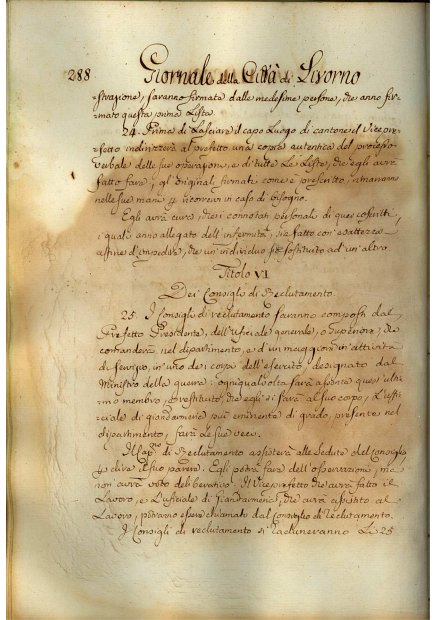 288.
Giornale della Città di Livorno
-strazione, saranno firmate dalle medesime persone, che anno fir-
-mato questa prima Lista.
24. Prima di Lasciare il capo Luogo di cantone il Vicepre-
-fetto indirizzerà al prefetto una copia autentica del processo
verbale delle sue operazioni, e di tutte Le Liste, che egli avrà
fatto fare; gl'originali firmati come è prescritto, rimarranno
nelle sue mani p ricorrervi in caso di bisogno.
Egli avrà cura, che i connotati personali di quei coscritti,
i quali anno allegato dell'infermità, sia fatto con esattezza
affine d'impedire, che un individuo sia sostituito ad un altro.
Titolo VI
Dei Consigli di Reclutamento.
25. I Consigli di reclutamento saranno composti dal
Prefetto Presidente, dell'ufiziale generale, o superiore, che
comanderà nel dipartimento, e d'un maggiore in attività
di servizio in uno dei corpi dell'esercito, designato dal
Ministro della guerra: ogniqualvolta sarà assente quest'ulti-
mo membro, o restituito che egli si sarà al suo corpo, L'uffi-
ciale di giandarmeria più eminente di grado, presente nel
dipartimento, farà Le sue veci.
Il Capno di Reclutamento assisterà alle Sedute del consiglio
p dire il suo parere. Egli potrà fare dell'osservazioni, ma
non avrà voto deliberativo. Il Viceprefetto che avrà fatto il
Lavoro, e L'ufiziale di Giandarmeria, che avrà assistito al
Lavoro, potranno essere chiamati dal Consiglio di Reclutamento.
I Consigli di reclutamento si raduneranno Li 25